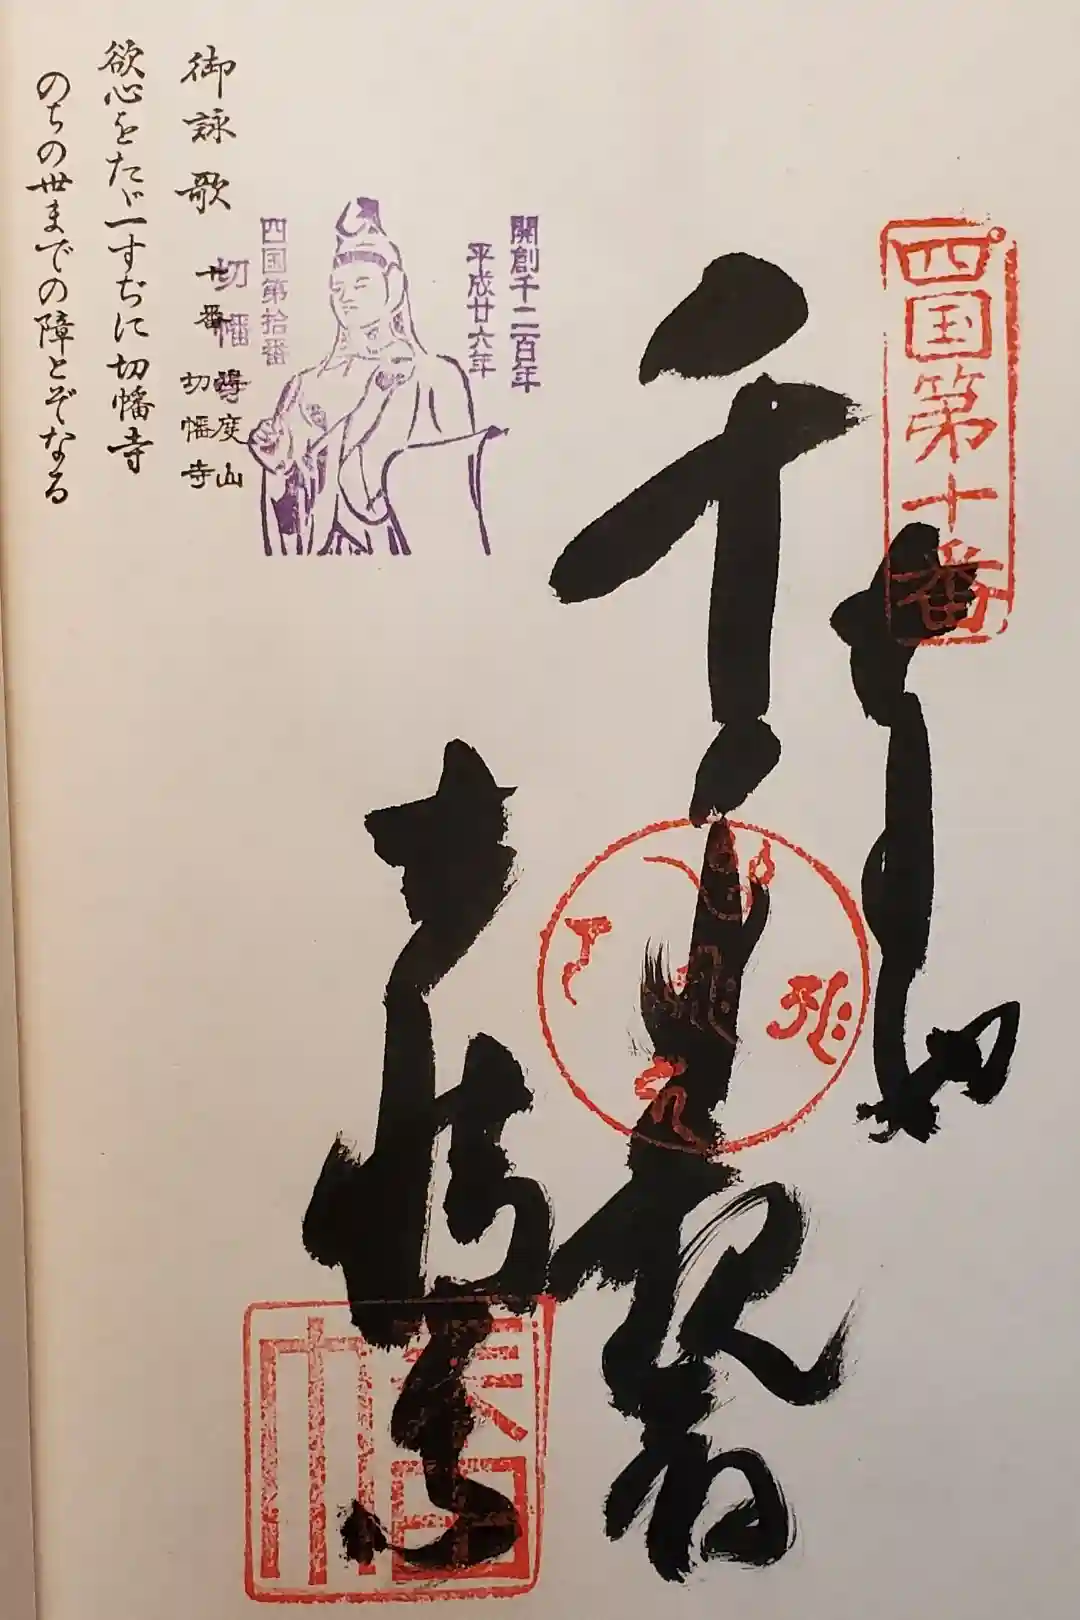 四国第十番
奉納
千手観音
切幡寺
開創千二百年
平成廿六年
四国第拾番
切幡
御詠歌
十番 得度山
切幡寺
欲心をたゞ一すぢに切幡寺
のちの世までの障とぞなる